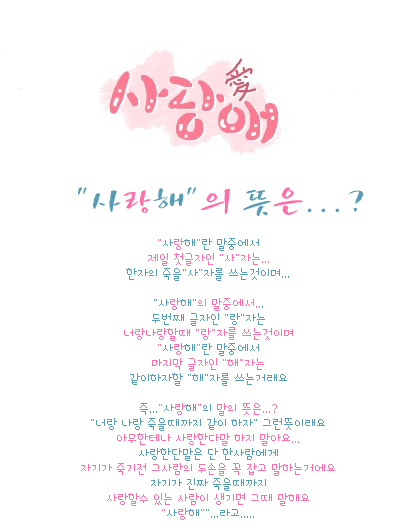 사랑愛
"사랑해"의 뜻은...?
"사랑해"란 말중에서
제일 첫글자인 "사"자는...
한자의 죽을"사"자를 쓰는것이며...
"사랑해"의 말중에서...
두번째 글자인 "랑"자는
너랑나랑할때 "랑"자를 쓰는것이며
"사랑해"란 말중에서
마지막 글자인 "해"자는
같이하자할 "해"자를 쓰는거래요
즉..."사랑해"의 말의 뜻은...?
"너랑 나랑 죽을때까지 같이 하자" 그런뜻이래요
아무한테나 사랑한다말 하지 말아요...
사랑한단말은 단 한사람에게
자기가 죽기전 그사람의 두손을 꼭 잡고 말하는거에요
자기가 진짜 죽을때까지
사랑할수 있는 사람이 생기면 그때 말해요
"사랑해""...라고.....